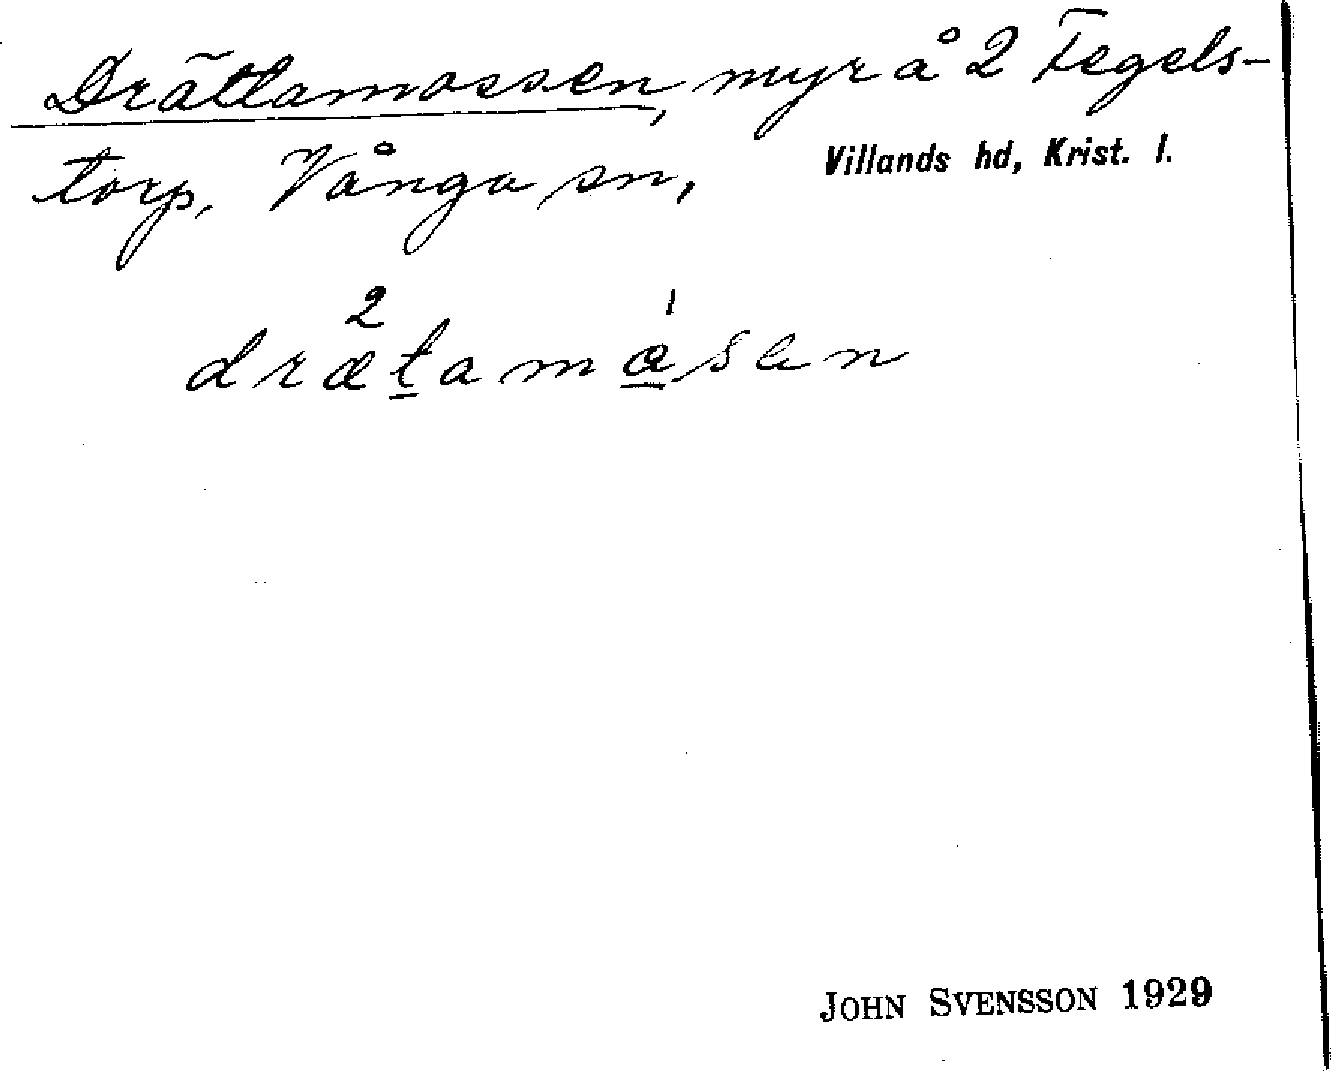 Drättamossen, myr å 2 Tegels-
torp, Vånga sn, Villands hd, Krist. l.
2 1
drætamåsen
JOHN SVENSSON 1929